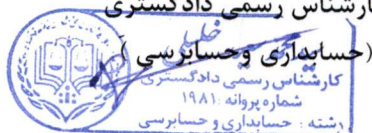 کارشناس رسمی دادگستری
(حسابداری وحسابرسی)
خلیل
کارشناس رسمی دادگستری
شماره پروانه : ۱۹۸۱
رشته : حسابداری و حسابرسی